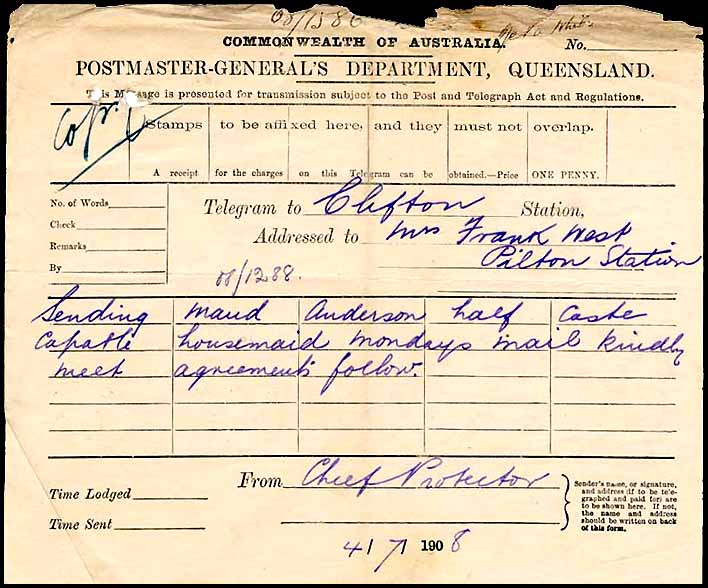 08/1586
COMMONWEALTH OF AUSTRALIA.
No.
POSTMASTER-GENERAL'S DEPARTMENT, QUEENSLAND.
This Message is presented for transmission subject to the Post and Telegraph Act and Regulations.
Copy
Stamps to be affixed here, and they must not overlap.
A receipt for the charges on this Telegram can be obtained.—Price ONE PENNY.
No. of Words
Check
Remarks
By
Telegram to Clifton Station,
Addressed to Mrs Frank West
Pilton Station
08/1288.
Sending Maud Anderson half Caste
Capable housemaid Mondays mail kindly
meet agreements follow.
Time Lodged
Time Sent
From Chief Protector
Sender's name, or signature,
and address (if to be te'e-
graphed and paid for) are
to be shown here. If not,
the name and address
should be written on back
of this form.
4/7/1908